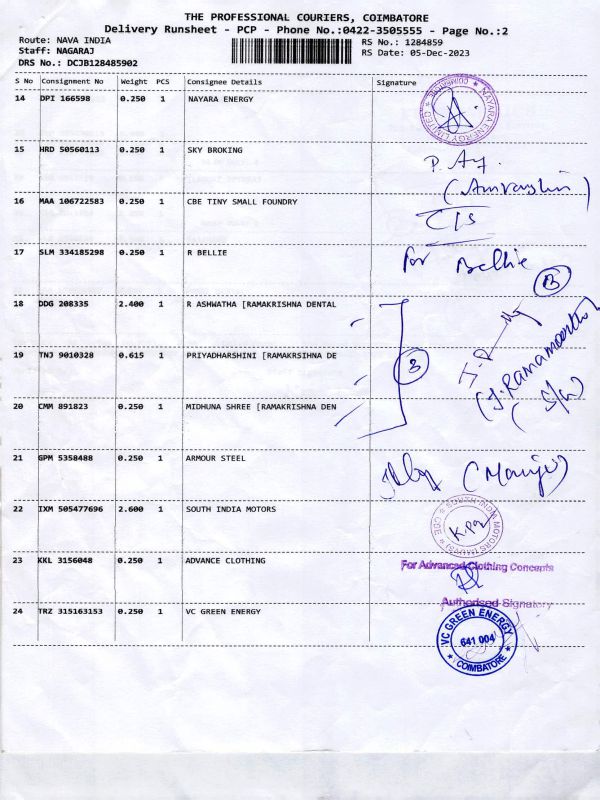 THE PROFESSIONAL COURIERS, COIMBATORE
Delivery Runsheet - PCP - Phone No.:0422-3505555 - Page No.:2
Route: NAVA INDIA
Staff: NAGARAJ
DRS No.: DCJB128485902
RS No.: 1284859
RS Date: 05-Dec-2023
S No Consignment No Weight PCS Consignee Details Signature
14 DPI 166598 0.250 1 NAYARA ENERGY
NAYARA ENERGY LIMITED * COIMBATORE *
15 HRD 50560113 0.250 1 SKY BROKING
16 MAA 106722583 0.250 1 CBE TINY SMALL FOUNDRY
17 SLM 334185298 0.250 1 R BELLIE
For Bellie
18 DDG 208335 2.400 1 R ASHWATHA [RAMAKRISHNA DENTAL
B
19 TNJ 9010328 0.615 1 PRIYADHARSHINI [RAMAKRSIHNA DE
3
20 CMM 891823 0.250 1 MIDHUNA SHREE [RAMAKRISHNA DEN
21 GPM 5358488 0.250 1 ARMOUR STEEL
22 IXM 505477696 2.600 1 SOUTH INDIA MOTORS
23 KKL 3156048 0.250 1 ADVANCE CLOTHING
For Advanced Clothing Concepts
Authorised Signatory
24 TRZ 315163153 0.250 1 VC GREEN ENERGY
VC GREEN ENERGY
641 004
* COIMBATORE *